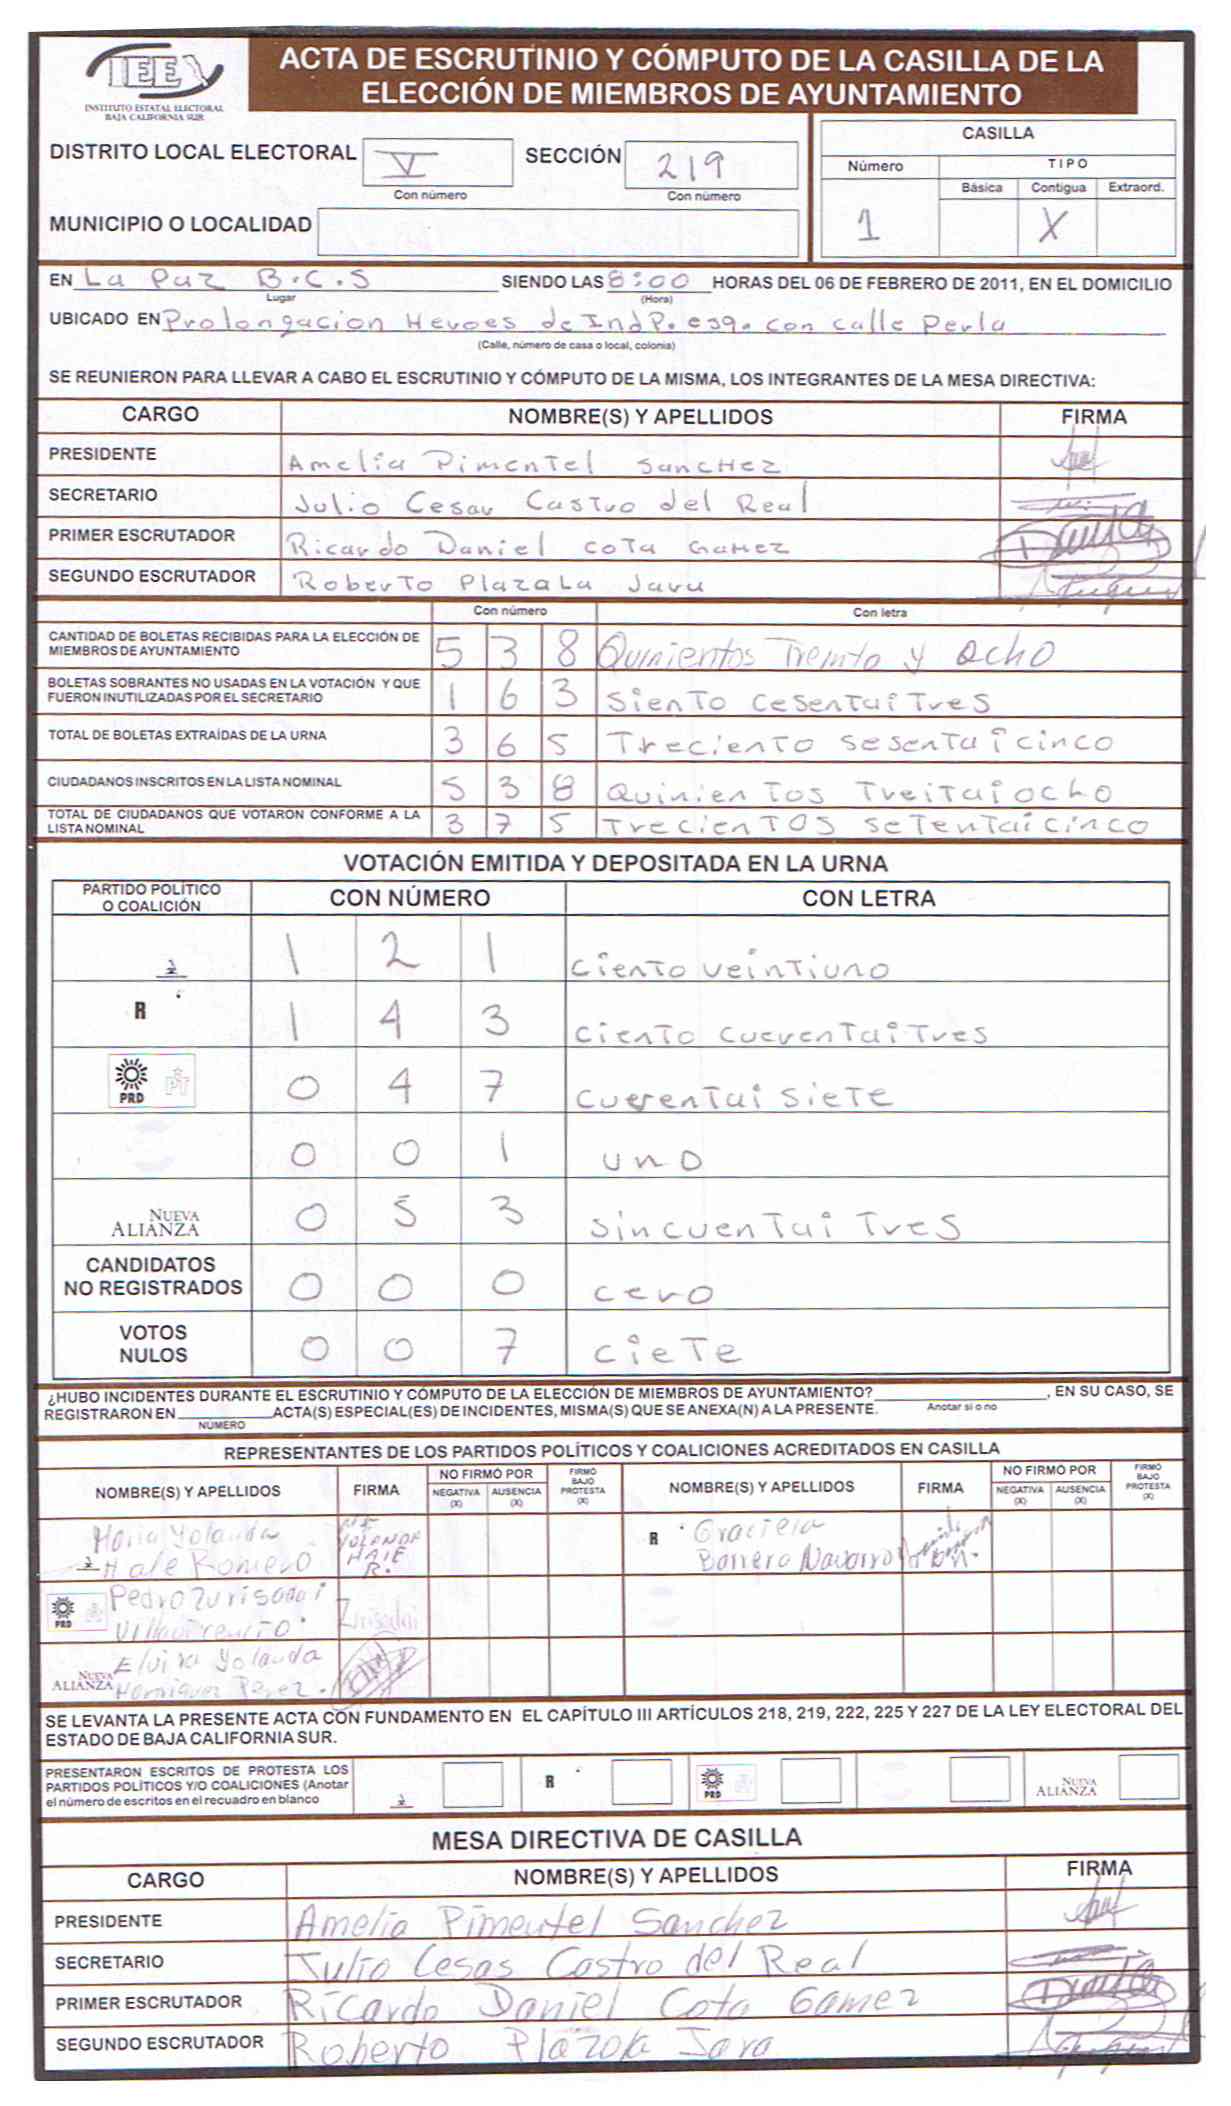 IEE
INSTITUTO ESTATAL ELECTORAL
BAJA CALIFORNIA SUR
ACTA DE ESCRUTINIO Y CÓMPUTO DE LA CASILLA DE LA
ELECCIÓN DE MIEMBROS DE AYUNTAMIENTO
DISTRITO LOCAL ELECTORAL V SECCIÓN 219
Con número Con número
MUNICIPIO O LOCALIDAD
CASILLA
Número TIPO
Básica Contigua Extraord.
1 X
EN La Paz B.C.S SIENDO LAS 8:00 HORAS DEL 06 DE FEBRERO DE 2011, EN EL DOMICILIO
Lugar (Hora)
UBICADO EN Prolongacion Heroes de IndP. esq. con calle Perla
(Calle, número de casa o local, colonia)
SE REUNIERON PARA LLEVAR A CABO EL ESCRUTINIO Y CÓMPUTO DE LA MISMA, LOS INTEGRANTES DE LA MESA DIRECTIVA:
CARGO NOMBRE(S) Y APELLIDOS FIRMA
PRESIDENTE Amelia Pimentel SancHez
SECRETARIO Julio Cesar Castro del Real
PRIMER ESCRUTADOR Ricardo Daniel cota GaMez
SEGUNDO ESCRUTADOR Roberto PlazaLa Java
Con número Con letra
CANTIDAD DE BOLETAS RECIBIDAS PARA LA ELECCIÓN DE
MIEMBROS DE AYUNTAMIENTO 5 3 8 Quinientos Treinta y ocho
BOLETAS SOBRANTES NO USADAS EN LA VOTACIÓN Y QUE
FUERON INUTILIZADAS POR EL SECRETARIO 1 6 3 siento cesentaitres
TOTAL DE BOLETAS EXTRAÍDAS DE LA URNA 3 6 5 Treciento sesentaicinco
CIUDADANOS INSCRITOS EN LA LISTA NOMINAL 5 3 8 Quinientos Treitaiocho
TOTAL DE CIUDADANOS QUE VOTARON CONFORME A LA
LISTA NOMINAL 3 7 5 Trecientos setentaicinco
VOTACIÓN EMITIDA Y DEPOSITADA EN LA URNA
PARTIDO POLÍTICO
O COALICIÓN CON NÚMERO CON LETRA
1 2 1 ciento veintiuno
R 1 4 3 ciento cuerentaitres
PRD PT 0 4 7 cuerentai siete
0 0 1 uno
NUEVA
ALIANZA 0 5 3 sincuentai tres
CANDIDATOS
NO REGISTRADOS 0 0 0 cero
VOTOS
NULOS 0 0 7 ciete
¿HUBO INCIDENTES DURANTE EL ESCRUTINIO Y CÓMPUTO DE LA ELECCIÓN DE MIEMBROS DE AYUNTAMIENTO? , EN SU CASO, SE
Anotar si o no
REGISTRARON EN ACTA(S) ESPECIAL(ES) DE INCIDENTES, MISMA(S) QUE SE ANEXA(N) A LA PRESENTE.
NÚMERO
REPRESENTANTES DE LOS PARTIDOS POLÍTICOS Y COALICIONES ACREDITADOS EN CASILLA
NOMBRE(S) Y APELLIDOS FIRMA NO FIRMÓ POR NEGATIVA (X) AUSENCIA (X) FIRMÓ BAJO PROTESTA (X) NOMBRE(S) Y APELLIDOS FIRMA NO FIRMÓ POR NEGATIVA (X) AUSENCIA (X) FIRMÓ BAJO PROTESTA (X)
Maria Yolanda YOLANDA R Graciela
Hale Romero HALE R. Barrera Navarro
PRD Pedro Zurisadai Zurisadai
Elvira Yolanda
NUEVA ALIANZA Perez
SE LEVANTA LA PRESENTE ACTA CON FUNDAMENTO EN EL CAPÍTULO III ARTÍCULOS 218, 219, 222, 225 Y 227 DE LA LEY ELECTORAL DEL
ESTADO DE BAJA CALIFORNIA SUR.
PRESENTARON ESCRITOS DE PROTESTA LOS
PARTIDOS POLÍTICOS Y/O COALICIONES (Anotar
el número de escritos en el recuadro en blanco
R PRD NUEVA ALIANZA
MESA DIRECTIVA DE CASILLA
CARGO NOMBRE(S) Y APELLIDOS FIRMA
PRESIDENTE Amelia Pimentel Sanchez
SECRETARIO Julio Cesas Castro del Real
PRIMER ESCRUTADOR Ricardo Daniel Cota Gamez
SEGUNDO ESCRUTADOR Roberto Plazola Java